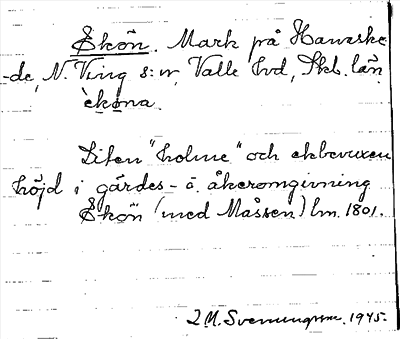 Ekön. Mark på Hanaske-
-de, N. Ving s:n, Valle hd, Skb. län
èkøna.
Liten "holme" och ekbevuxen
höjd i gärdes- o. åkeromgivning
Ekön (med Måssen) lm. 1801.
M. Svenungsson. 1945.